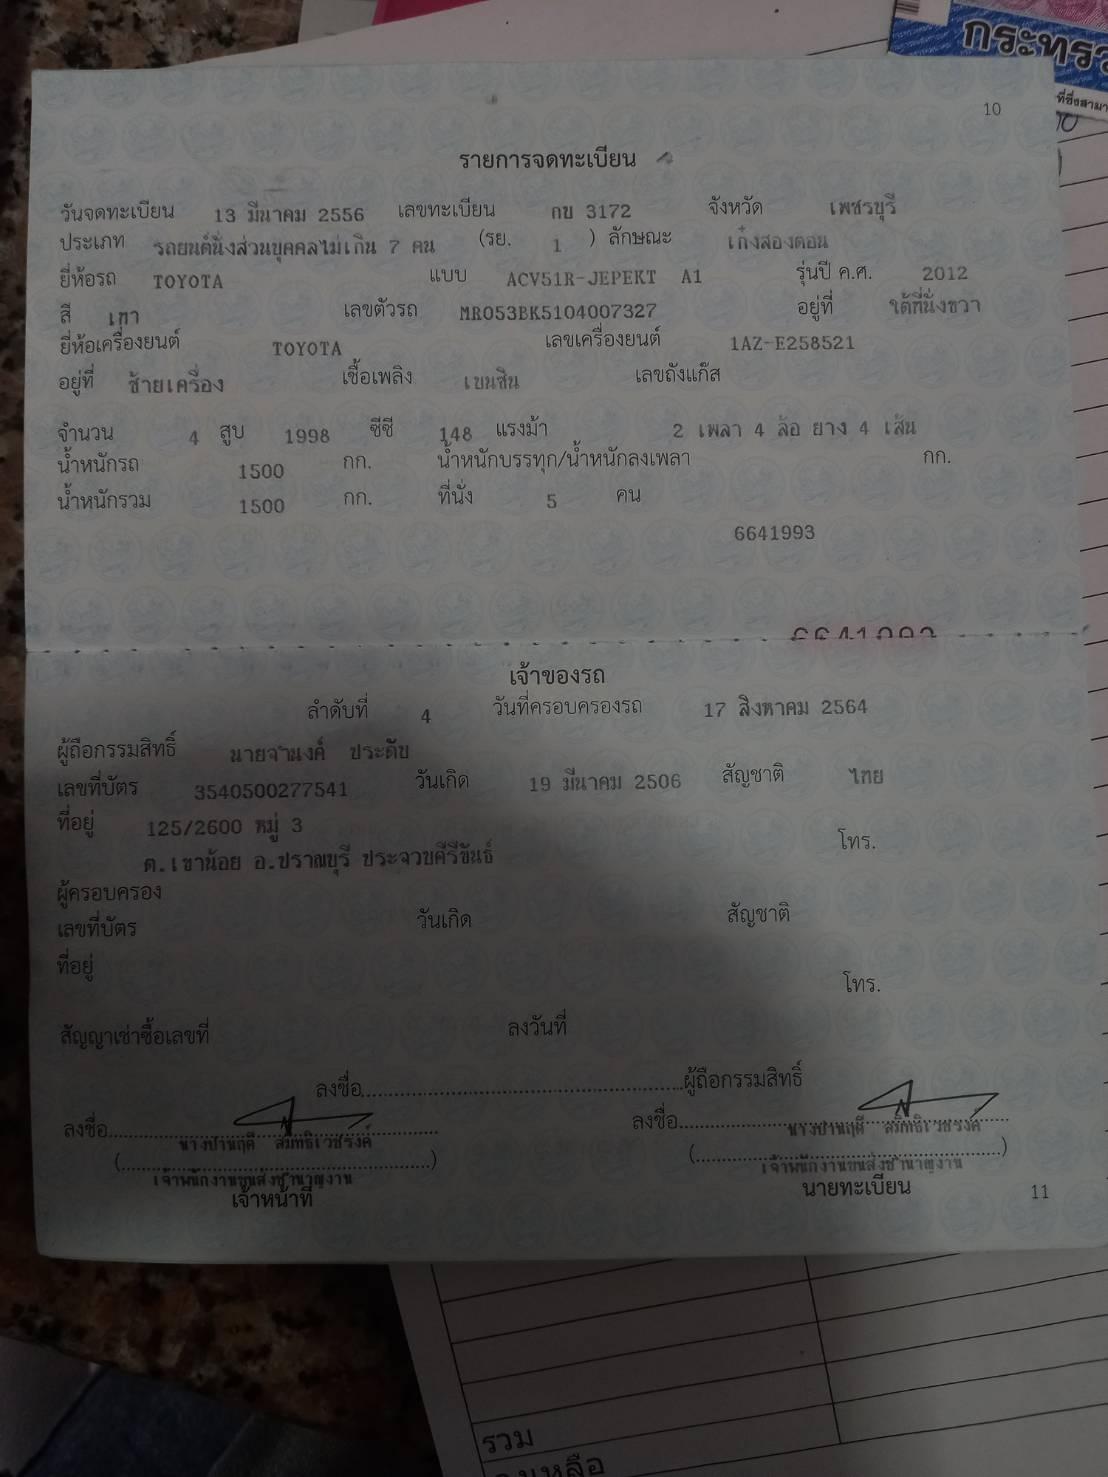 กระทรว
ที่ซึ่งสามา
10
รายการจดทะเบียน
วันจดทะเบียน 13 มีนาคม 2556 เลขทะเบียน กข 3172 จังหวัด เพชรบุรี
ประเภท รถยนต์นั่งส่วนบุคคลไม่เกิน 7 คน (รย. 1 ) ลักษณะ เก๋งสองตอน
ยี่ห้อรถ TOYOTA แบบ ACV51R-JEPEKT A1 รุ่นปี ค.ศ. 2012
สี เทา เลขตัวรถ MR053BK5104007327 อยู่ที่ ใต้ที่นั่งขวา
ยี่ห้อเครื่องยนต์ TOYOTA เลขเครื่องยนต์ 1AZ-E258521
อยู่ที่ ซ้ายเครื่อง เชื้อเพลิง เบนซิน เลขถังแก๊ส
จำนวน 4 สูบ 1998 ซีซี 148 แรงม้า 2 เพลา 4 ล้อ ยาง 4 เส้น
น้ำหนักรถ 1500 กก. น้ำหนักบรรทุก/น้ำหนักลงเพลา กก.
น้ำหนักรวม 1500 กก. ที่นั่ง 5 คน
6641993
6641993
เจ้าของรถ
ลำดับที่ 4 วันที่ครอบครองรถ 17 สิงหาคม 2564
ผู้ถือกรรมสิทธิ์ นายจำนงค์ ประดับ
เลขที่บัตร 3540500277541 วันเกิด 19 มีนาคม 2506 สัญชาติ ไทย
ที่อยู่ 125/2600 หมู่ 3 โทร.
ต.เขาน้อย อ.ปราณบุรี ประจวบคีรีขันธ์
ผู้ครอบครอง
เลขที่บัตร วันเกิด สัญชาติ
ที่อยู่ โทร.
สัญญาเช่าซื้อเลขที่ ลงวันที่
ลงชื่อ ผู้ถือกรรมสิทธิ์
ลงชื่อ ลงชื่อ
เจ้าพนักงานขนส่งชำนาญงาน เจ้าพนักงานขนส่งชำนาญงาน
เจ้าหน้าที่ นายทะเบียน
11
รวม